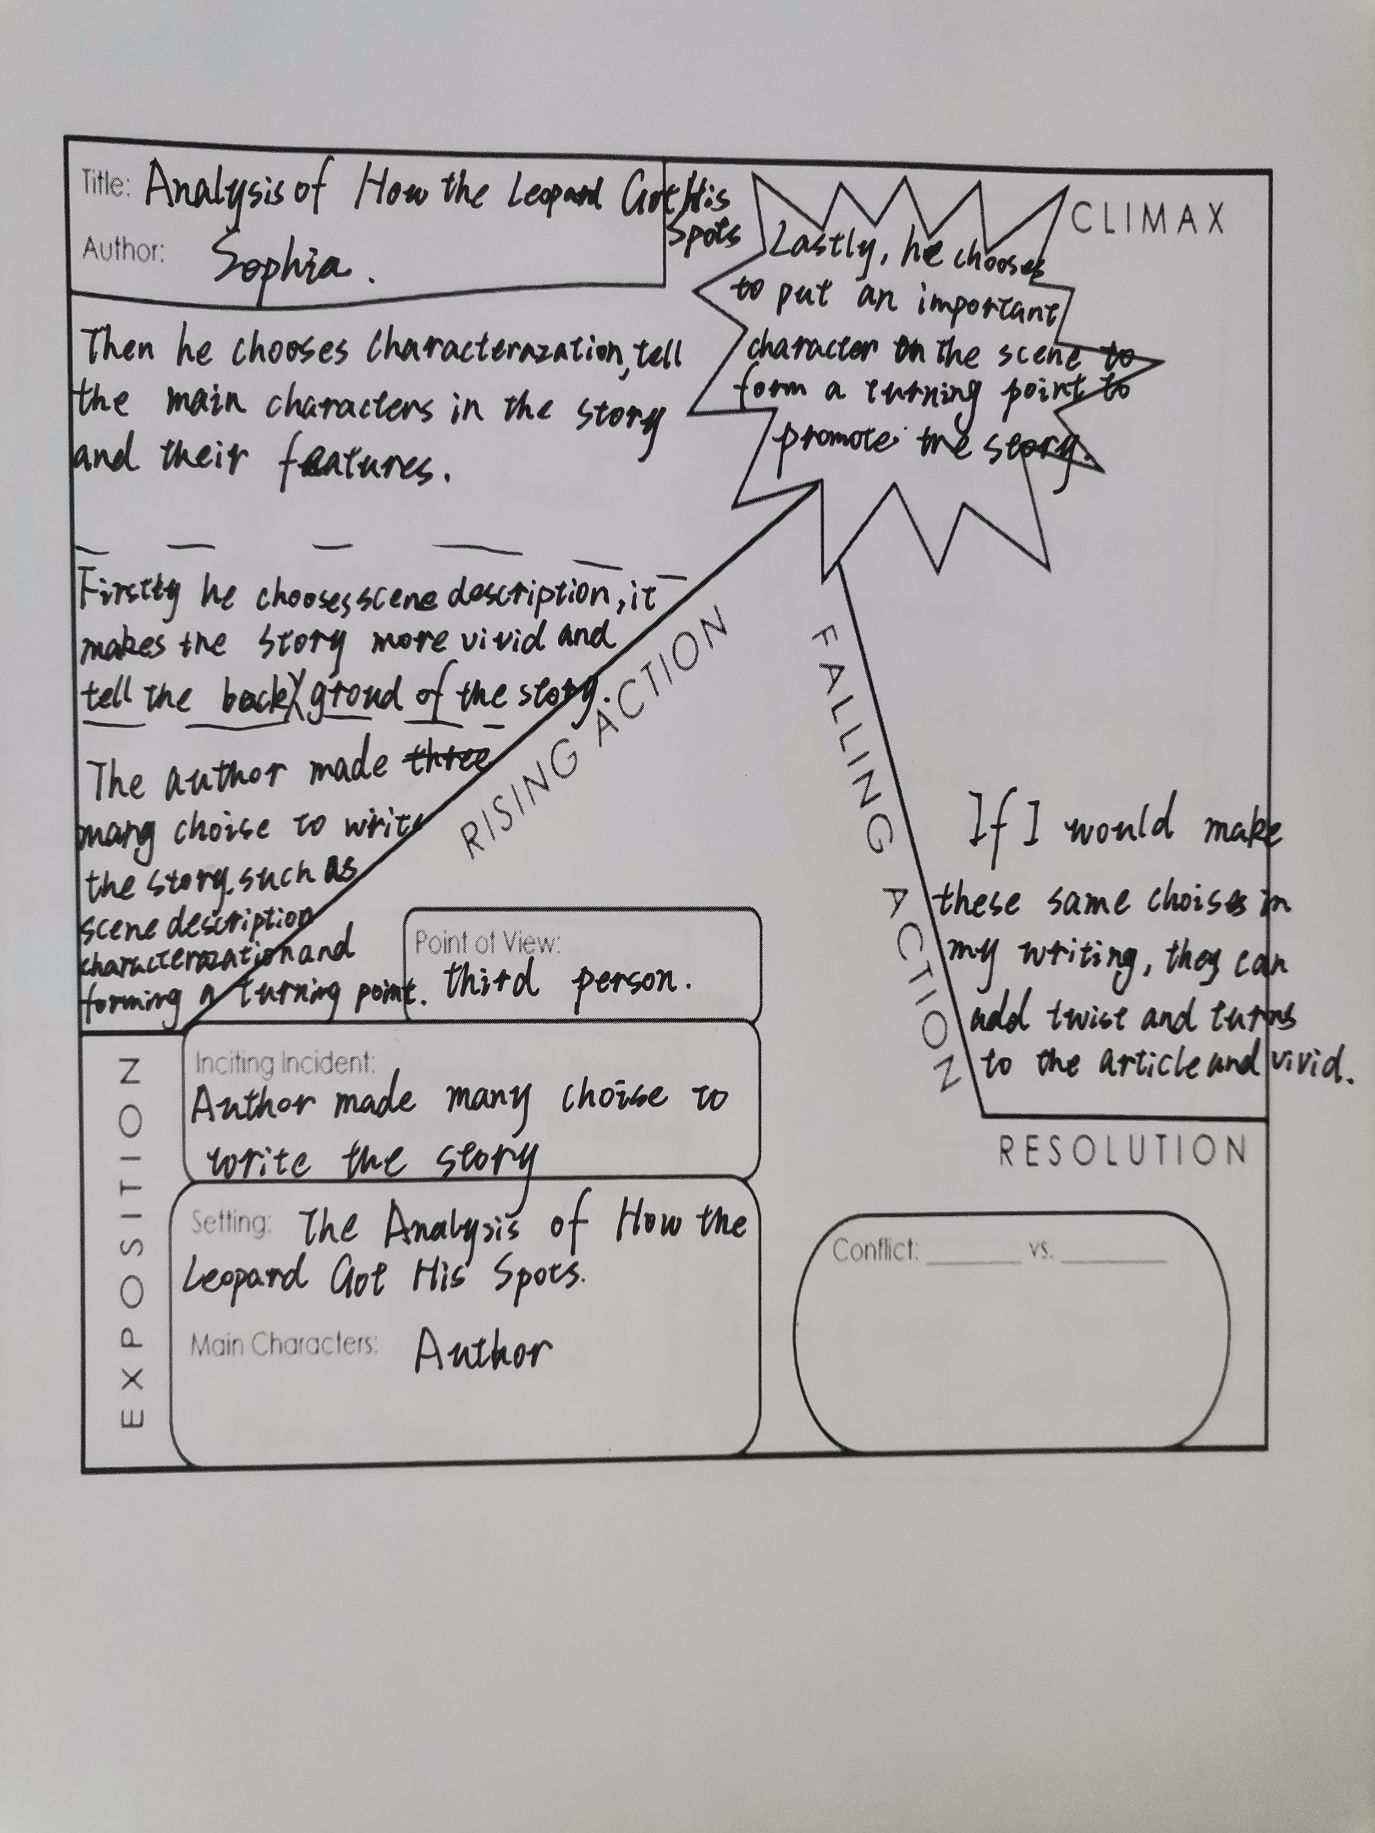 Title: Analysis of How the Leopard Got His
Spots
Author: Sophia.
CLIMAX
Lastly, he chooses
to put an important
character on the scene to
form a turning point to
promote the story.
Then he chooses characterazation, tell
the main characters in the story
and their features.
Firstly he chooses scene description, it
makes the story more vivid and
tell the back groud of the story.
The author made three
many choise to write
the story, such as
scene description
characterazation and
forming a turning point.
RISING ACTION
FALLING ACTION
If I would make
these same choises in
my writing, they can
add twist and turns
to the article and vivid.
RESOLUTION
Point of View:
third person.
EXPOSITION
Inciting Incident:
Author made many choise to
write the story
Setting: The Analysis of How the
Leopard Got His Spots.
Main Characters: Author
Conflict: ________ vs. ________